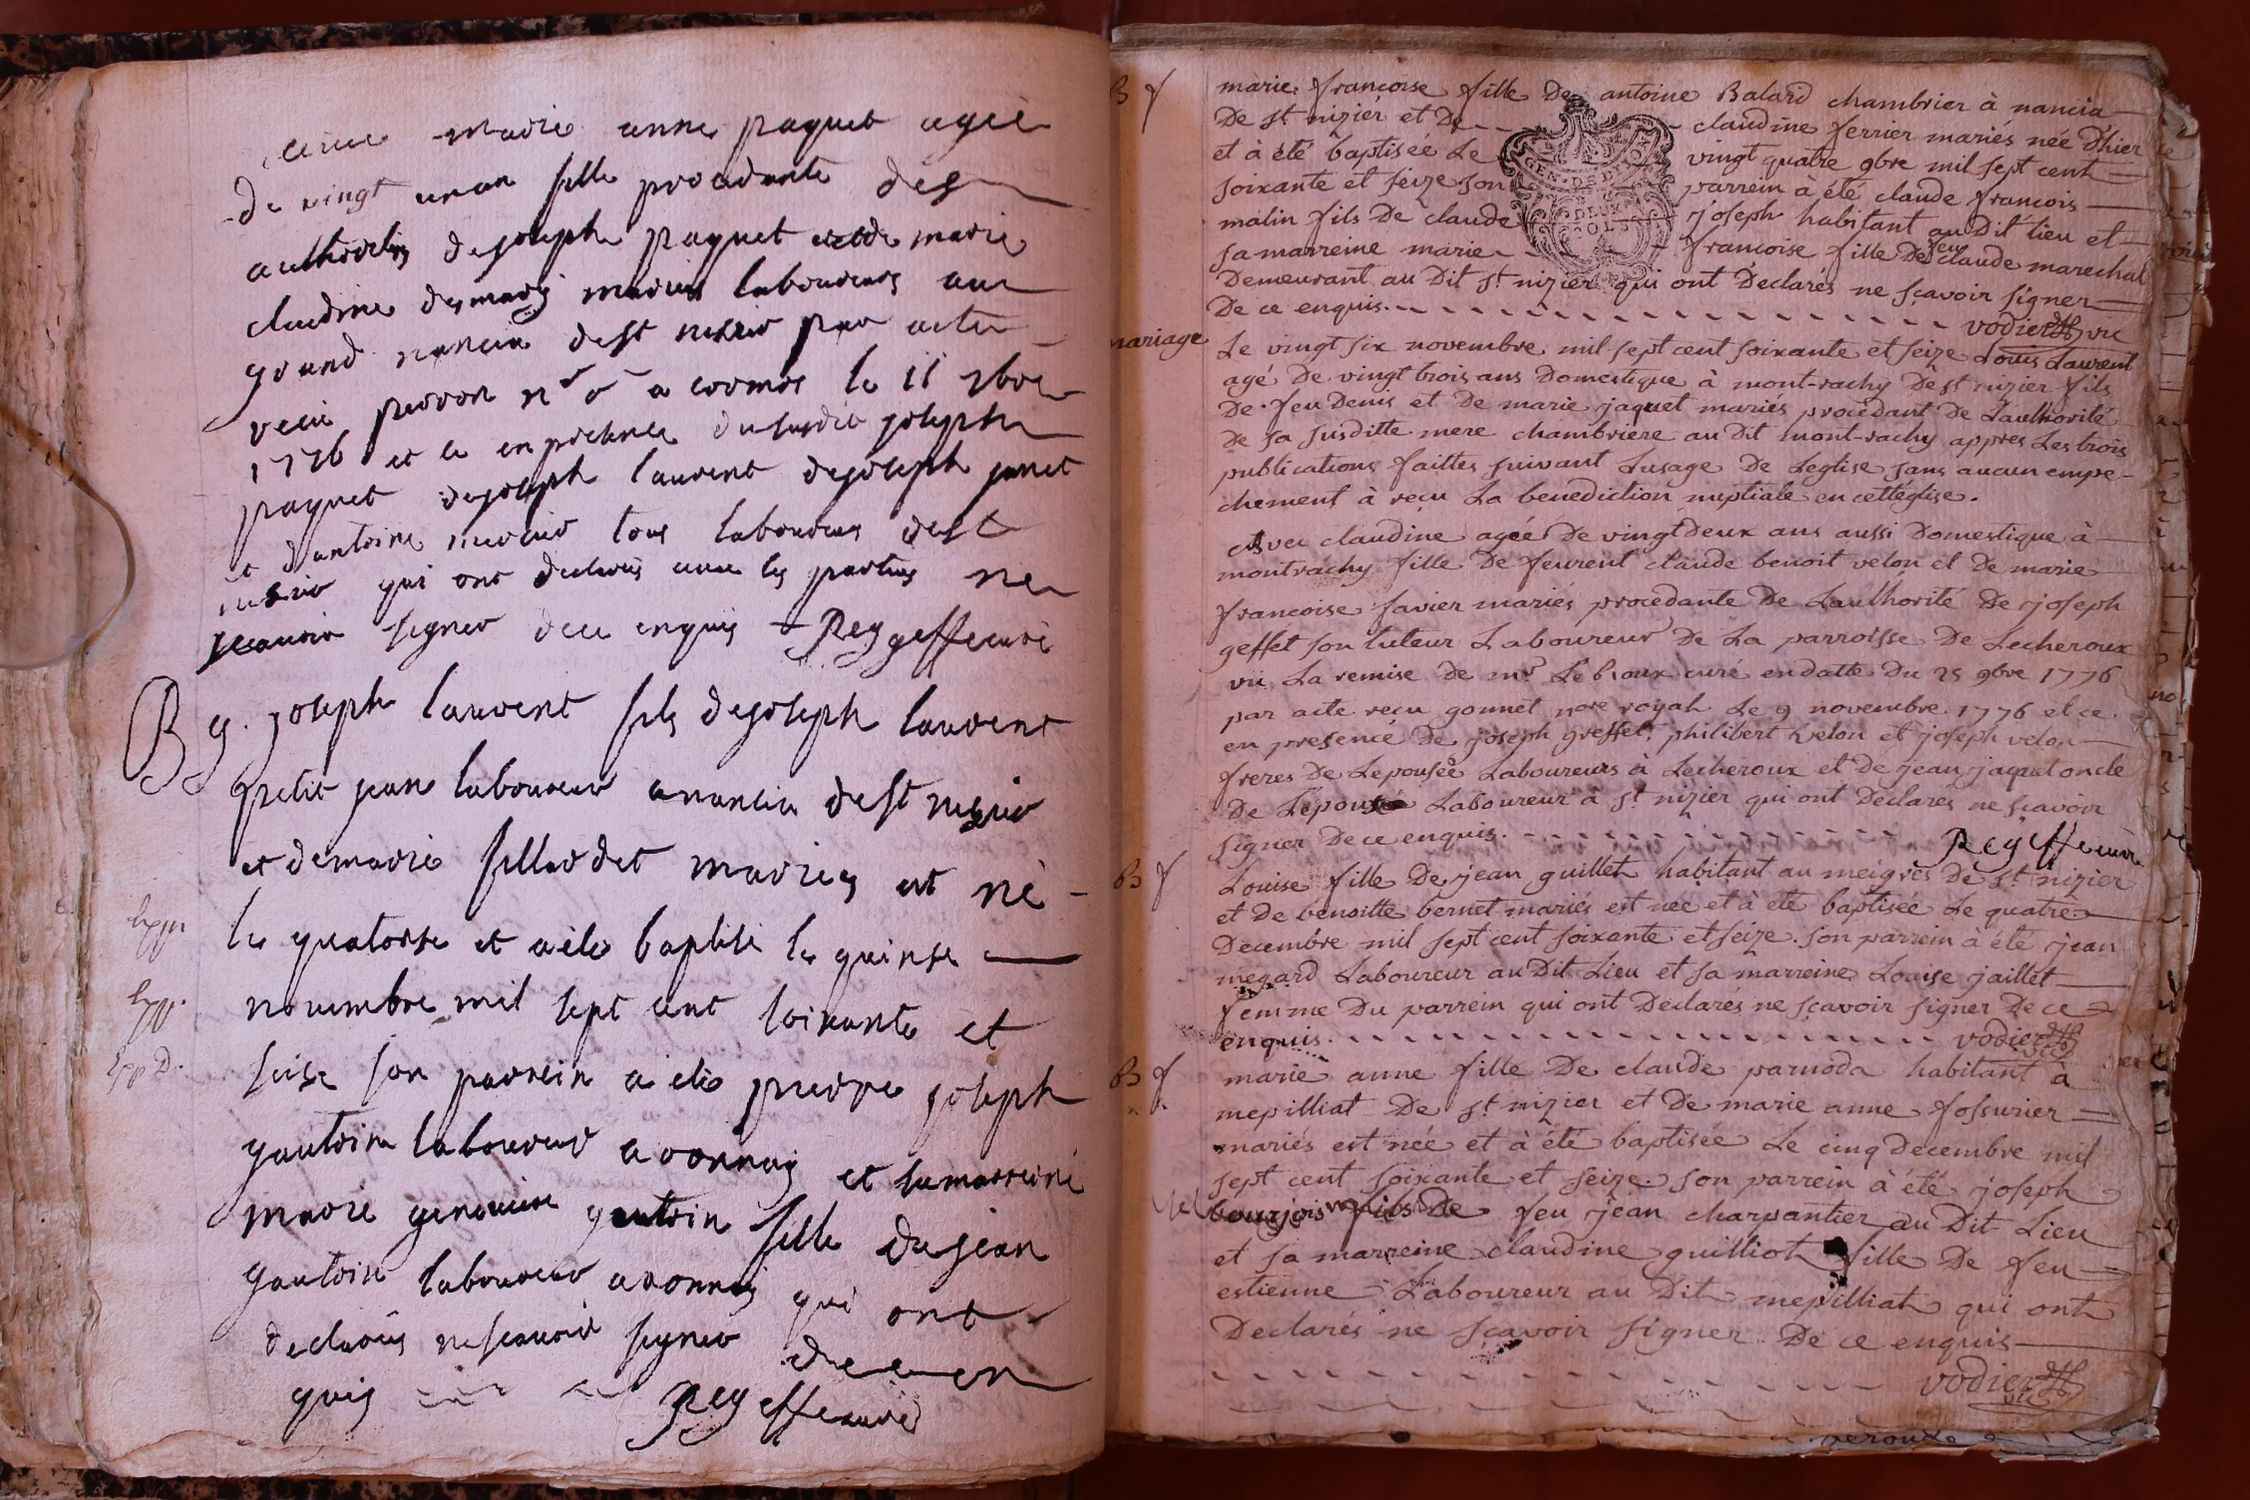 avec marie anne paquet agée
de vingt un an fille procedante des
authorités de joseph paquet et de marie
claudine desmaris mariés laboureurs au
grand nancia de st nisier par acte
recu perron nre a cormos le 11 9bre
1776 et ce en presence du susdit joseph
paquet de joseph laurent de joseph janet
et d'antoine mercier tous laboureurs de st
nisier qui ont declarés avec les parties ne
scavoir signer de ce enquis Reygeffe curé
B g. joseph laurent fils de joseph laurent
petit jean laboureur a nancia de st nisier
et de marie fillardet mariés est né
le quatorse et a été baptisé le quinse
novembre mil sept cent soixante et
seise son parrein a été pierre joseph
gautoin laboureur a cormos et sa marreine
marie genevieve gautoin fille de jean
gautoin laboureur a cormos qui ont
declarés ne scavoir signer de ce en
quis Reygeffe curé
B f marie francoise fille de antoine Balard chambrier à nancia
De st nizier et De claudine ferrier mariés née D'hier
et à été baptisée Le vingt quatre 9bre mil sept cent
soixante et seize son parrein à été claude francois
malin fils De claude joseph habitant au Dit lieu et
sa marreine marie francoise fille De feu claude marechal
Demeurant au Dit st nizier qui ont Declarés ne sçavoir signer
De ce enquis. vodier vic
mariage Le vingt six novembre mil sept cent soixante et seize Louis Laurent
agé De vingt trois ans Domestique à mont-rachy De st nizier fils
De feu Denis et De marie jaquet mariés procedant De L'authorité
De sa susditte mere chambriere au Dit mont-rachy appres Les trois
publications faittes suivant L'usage De L'eglise sans aucun empe-
chement à reçu La benediction nuptiale en cett'église.
Avec claudine agée De vingt deux ans aussi Domestique à
montrachy fille De feurent claude benoit velon et De marie
francoise favier mariés procedante De L'authorité De joseph
geffet son tuteur Laboureur De La parroisse De Lecheroux
vu La remise De mr Lebraux curé en datte Du 25 9bre 1776
par acte recu gonnet nore royal Le 9 novembre 1776 et ce
en presence De joseph greffet, philibert velon et joseph velon
freres De L'epousée Laboureurs à Lecheroux et de jean jaquet oncle
De L'epousé Laboureur à st nizier qui ont Declares ne sçavoir
signer De ce enquis. Reygeffe curé
B f Louise fille De jean guillet habitant au meigres De st nizier
et de benoitte bernet mariés est née et à été baptisée Le quatre
Decembre mil sept cent soixante et seize. son parrein à été jean
megard Laboureur au Dit Lieu et sa marreine Louise jaillet
femme Du parrein qui ont Declarés ne sçavoir signer De ce
enquis. vodier vic
B f marie anne fille De claude parnoda habitant à
mepilliat De st nizier et De marie anne fossurier
mariés est née et à été baptisée Le cinq decembre mil
sept cent soixante et seize. son parrein à été joseph
bourjois fils De feu jean charpantier au Dit Lieu
et sa marreine claudine guilliot fille De feu
estienne Laboureur au Dit mepilliat qui ont
Declarés ne sçavoir signer De ce enquis
vodier vic